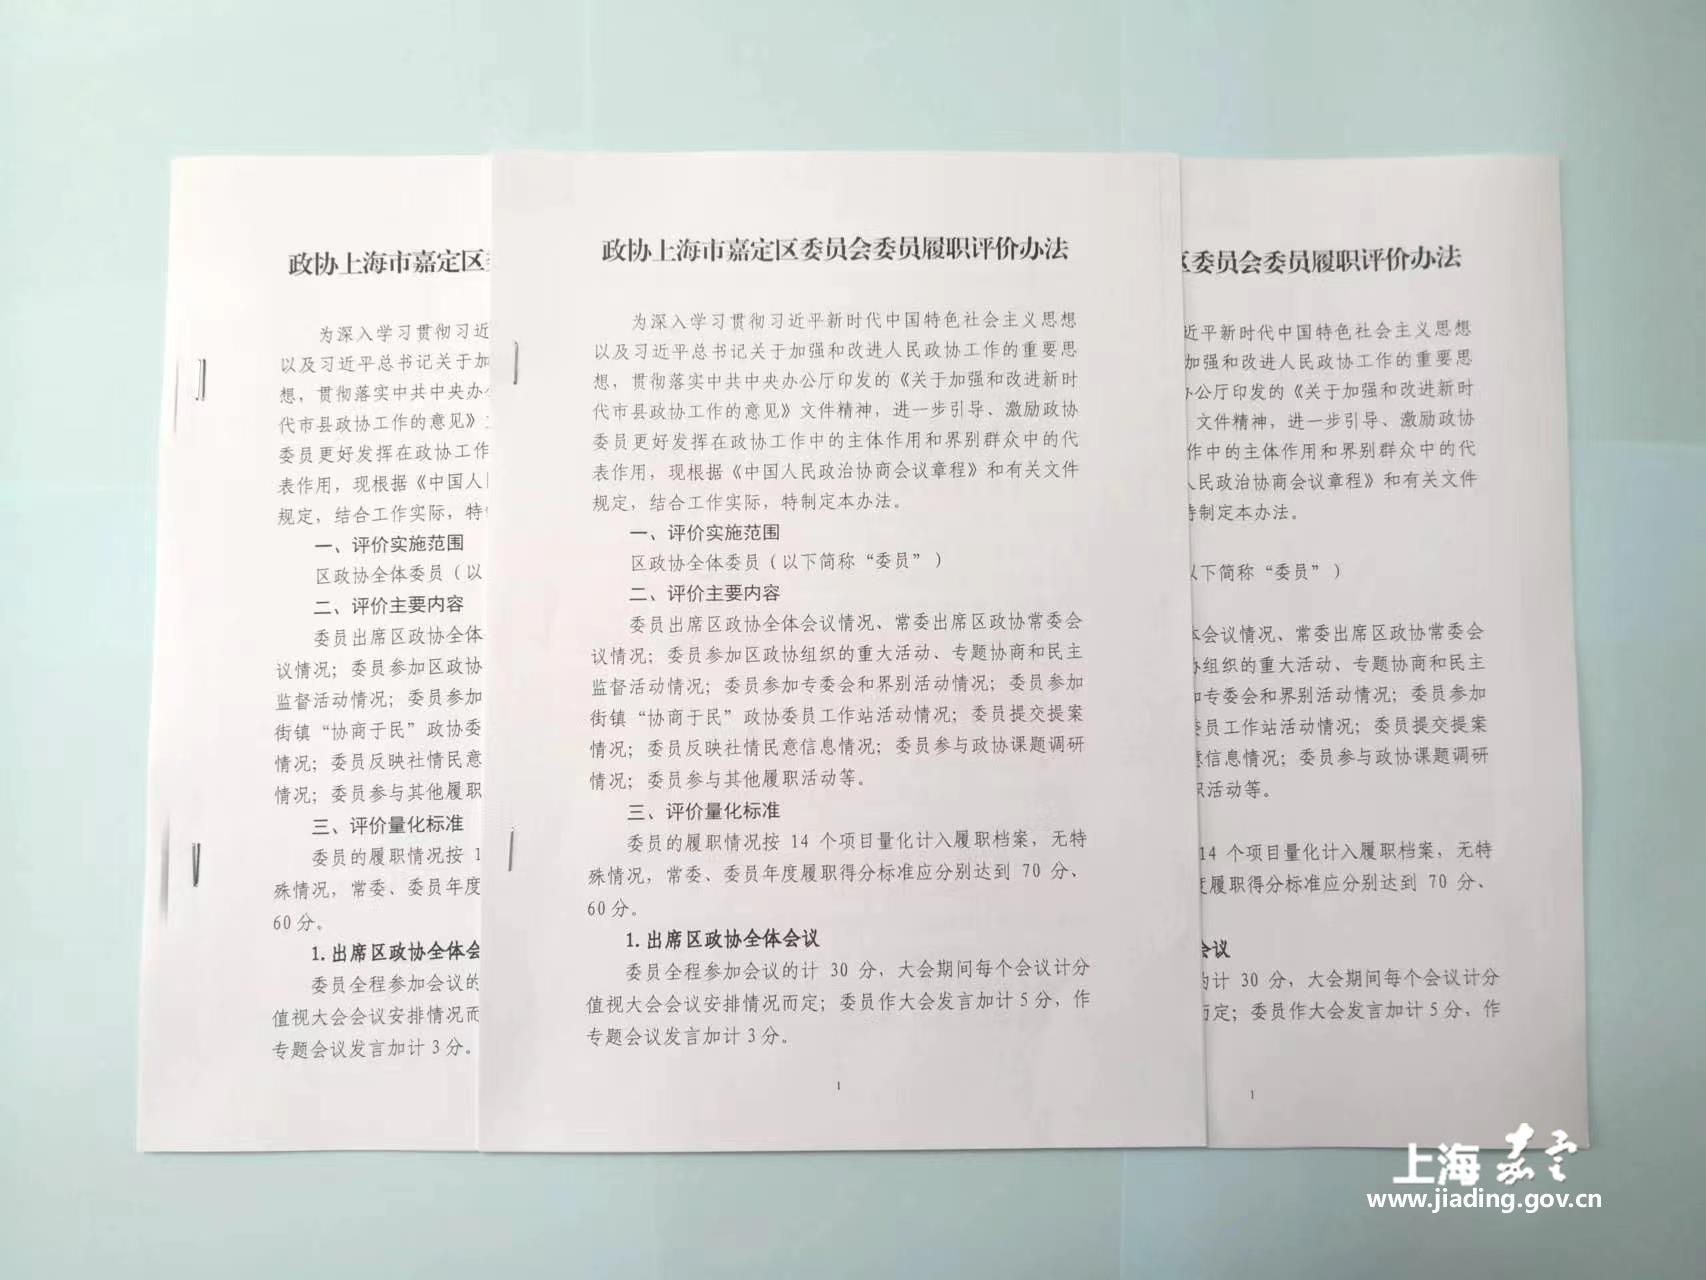 政协上海市嘉定区委
为深入学习贯彻习近
以及习近平总书记关于加
想，贯彻落实中共中央办
代市县政协工作的意见》
委员更好发挥在政协工作
表作用，现根据《中国人
规定，结合工作实际，特
一、评价实施范围
区政协全体委员（以
二、评价主要内容
委员出席区政协全体
议情况；委员参加区政协
监督活动情况；委员参加
街镇“协商于民”政协委
情况；委员反映社情民意
情况；委员参与其他履职
三、评价量化标准
委员的履职情况按 1
殊情况，常委、委员年度
60分。
1.出席区政协全体会
委员全程参加会议的
值视大会会议安排情况而
专题会议发言加计3分。
政协上海市嘉定区委员会委员履职评价办法
为深入学习贯彻习近平新时代中国特色社会主义思想
以及习近平总书记关于加强和改进人民政协工作的重要思
想，贯彻落实中共中央办公厅印发的《关于加强和改进新时
代市县政协工作的意见》文件精神，进一步引导、激励政协
委员更好发挥在政协工作中的主体作用和界别群众中的代
表作用，现根据《中国人民政治协商会议章程》和有关文件
规定，结合工作实际，特制定本办法。
一、评价实施范围
区政协全体委员（以下简称“委员”）
二、评价主要内容
委员出席区政协全体会议情况、常委出席区政协常委会
议情况；委员参加区政协组织的重大活动、专题协商和民主
监督活动情况；委员参加专委会和界别活动情况；委员参加
街镇“协商于民”政协委员工作站活动情况；委员提交提案
情况；委员反映社情民意信息情况；委员参与政协课题调研
情况；委员参与其他履职活动等。
三、评价量化标准
委员的履职情况按 14 个项目量化计入履职档案，无特
殊情况，常委、委员年度履职得分标准应分别达到 70 分、
60分。
1.出席区政协全体会议
委员全程参加会议的计 30 分，大会期间每个会议计分
值视大会会议安排情况而定；委员作大会发言加计5分，作
专题会议发言加计3分。
1
区委员会委员履职评价办法
近平新时代中国特色社会主义思想
加强和改进人民政协工作的重要思
办公厅印发的《关于加强和改进新时
文件精神，进一步引导、激励政协
作中的主体作用和界别群众中的代
人民政治协商会议章程》和有关文件
特制定本办法。
以下简称“委员”）
体会议情况、常委出席区政协常委会
协组织的重大活动、专题协商和民主
加专委会和界别活动情况；委员参加
委员工作站活动情况；委员提交提案
意信息情况；委员参与政协课题调研
职活动等。
14 个项目量化计入履职档案，无特
度履职得分标准应分别达到 70 分、
会议
的计 30 分，大会期间每个会议计分
而定；委员作大会发言加计5分，作
1
上海嘉定
www.jiading.gov.cn